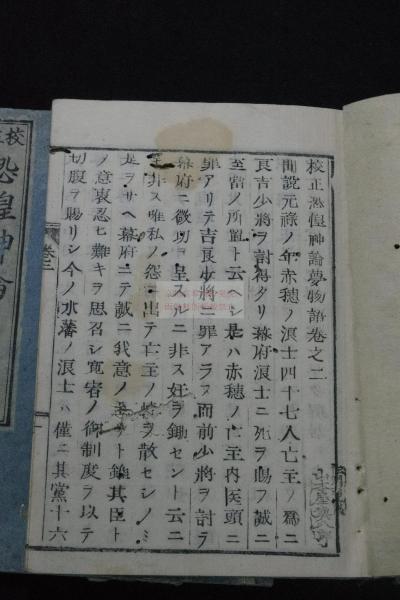 校正恐惶神論夢物語卷之二
聞説元禄ノ年赤穂ノ浪士四十七人亡主ノ爲ニ
良吉少將ヲ討得タリ幕府浪士ニ死ヲ賜フ誠ニ
至當ノ所置ト云ヘシ是ハ赤穂ノ亡主内匠頭ニ
罪アリテ吉良少將ニ罪アラス而前少將ヲ討ラ
幕府ニ微功ヲ呈スルニ非ス奸ヲ鋤セント云ニ
非ス唯私ノ怨ニ出テ亡主ノ憤ヲ散セシノミ
是ヲサヘ幕府ニテ誠ニ我意ノ
ト雖其臣ト
ノ意衷忍ヒ難キヲ思召シ寛宥ノ御制度ヲ以テ
切腹ヲ賜リシ今ノ水藩ノ浪士ハ僅ニ其黨十六
卷二
校正
恐惶神論